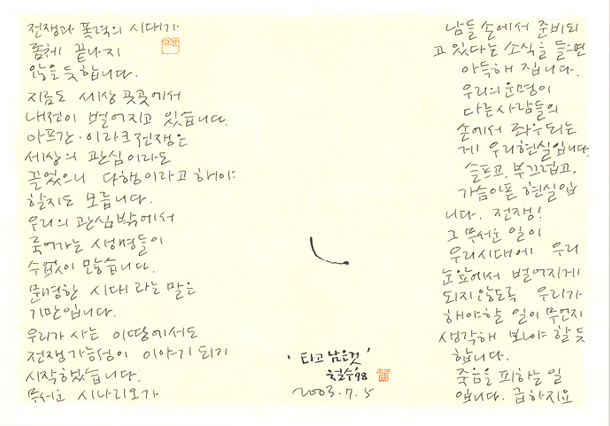 전쟁과 폭력의 시대가
좀체 끝나지
않을 듯 합니다.
지금도 세상 곳곳에서
내전이 벌어지고 있습니다.
아프간·이라크 전쟁은
세상의 관심이라도
끌었으니 다행이라고 해야
할지도 모릅니다.
우리의 관심 밖에서
죽어가는 생명들이
수없이 많습니다.
문명한 시대라는 말은
기만입니다.
우리가 사는 이땅에서도
전쟁가능성이 이야기 되기
시작했습니다.
무서운 시나리오가
남들 손에서 준비되
고 있다는 소식을 들으면
아득해 집니다.
우리의 운명이
다른 사람들의
손에서 좌우되는
게 우리현실입니다.
슬프고, 부끄럽고,
가슴아픈 현실입
니다. 전쟁!
그 무서운 일이
우리시대에 우리
눈앞에서 벌어지게
되지 않도록 우리가
해야할 일이 무언지
생각해 보아야 할 듯
합니다.
죽음을 피하는 일
입니다. 급하지요
'타고 남은 것'
'98
2003. 7. 5